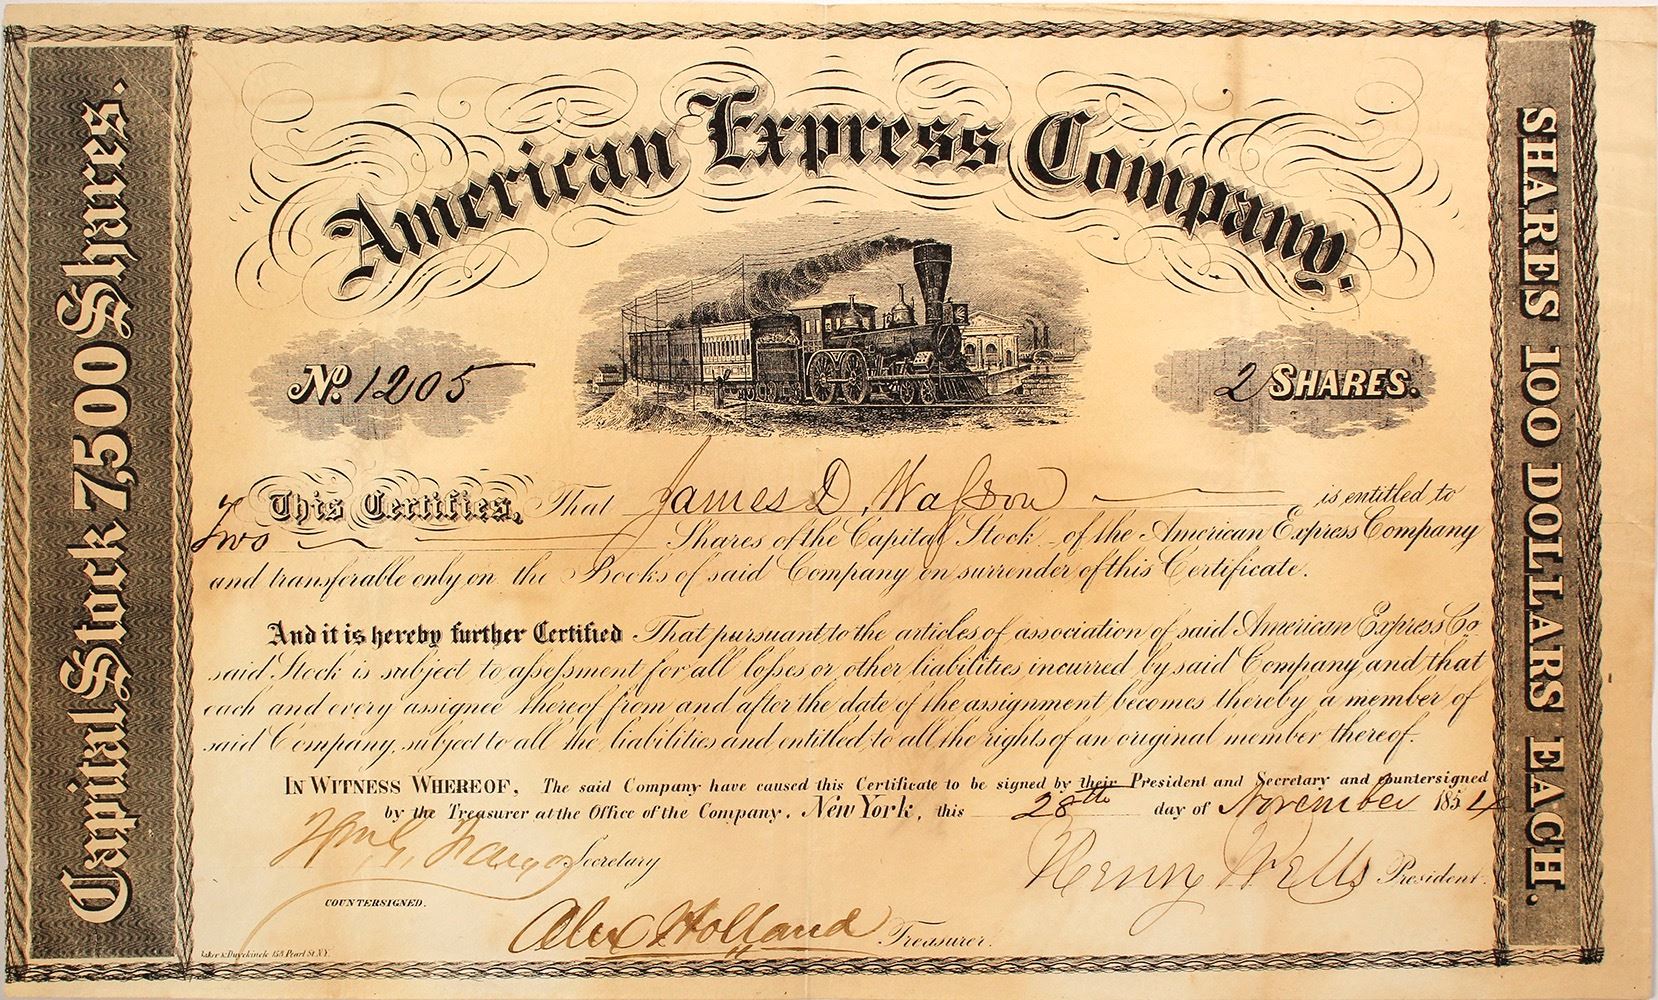 American Express Company.
Capital Stock 7,500 Shares.
SHARES 100 DOLLARS EACH.
No. 1205
2 SHARES.
This Certifies, That James D. Watson is entitled to
Two Shares of the Capital Stock of the American Express Company
and transferable only on the Books of said Company on surrender of this Certificate.
And it is hereby further Certified That pursuant to the articles of association of said American Express Co.
said Stock is subject to assessment for all losses or other liabilities incurred by said Company, and that
each and every assignee thereof from and after the date of the assignment becomes thereby a member of
said Company, subject to all the liabilities and entitled to all the rights of an original member thereof.
IN WITNESS WHEREOF, The said Company have caused this Certificate to be signed by their President and Secretary and countersigned
by the Treasurer at the Office of the Company. New York, this 28th day of November 1854
Wm G. Fargo Secretary
Henry Wells President.
COUNTERSIGNED.
Alex Holland Treasurer.
& Duyckinck 158 Pearl St. N.Y.